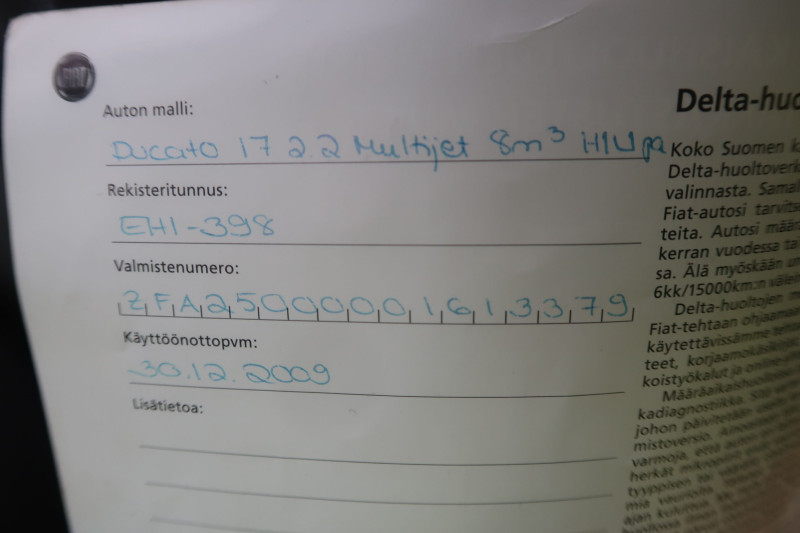 FIAT
Auton malli:
Ducato 17 2.2 Multijet 8m³ H1U pa
Rekisteritunnus:
EHI-398
Valmistenumero:
ZFA25000001613379
Käyttöönottopvm:
30.12.2009
Lisätietoa:
Delta-huo
Koko Suomen k
Delta-huoltoverk
valinnasta. Samal
Fiat-autosi tarvits
teita. Autosi määr
kerran vuodessa ta
sa. Älä myöskään
6kk/15000km:n välein
Delta-huoltojen
Fiat-tehtaan ohjaaman
käytettävissämme
teet, korjaamokäsikirjo
koistyökalut ja
Määräaikaishuollo
kadiagnostiikka.
johon päivitetään
mistoversio.
varmoja, että auton
herkät
tyyppisen tai
mia vaurioita.
ajan kuluttua